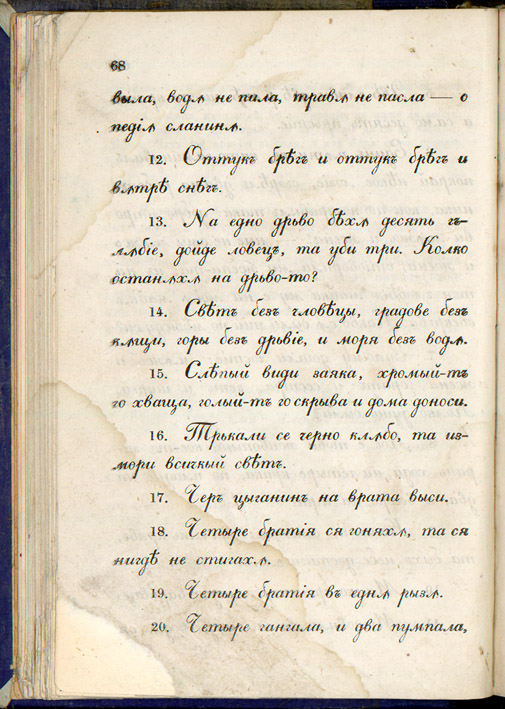 68
была, водѫ не пила, травѫ не пасла — о
педіѫ сланинѫ.
12. Оттукъ брѣгъ и оттукъ брѣгъ и
вѫтрѣ снѣгъ.
13. На едно дрьво бѣхѫ десять гъ-
лѫбіе, дойде ловецъ, та уби три. Колко
останѫхѫ на дрьво-то?
14. Свѣтъ безъ чловѣцы, градове безъ
кѫщи, горы безъ дрьвіе, и моря безъ водѫ.
15. Слѣпый види заяка, хромый-тъ
го хваща, голый-тъ го скрыва и дома доноси.
16. Трькали се черно клѫбо, та из-
мори всичкый свѣтъ.
17. Черъ цыганинъ на врата выси.
18. Четыре братія ся гоняхѫ, та ся
нигдѣ не стигахѫ.
19. Четыре братія въ еднѫ ризѫ.
20. Четыре гангала, и два пумпала,